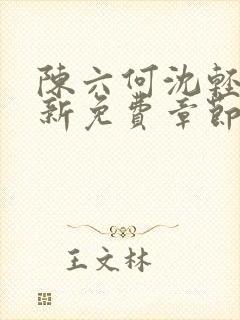 陳六何沈輕
新免費章節
王文林